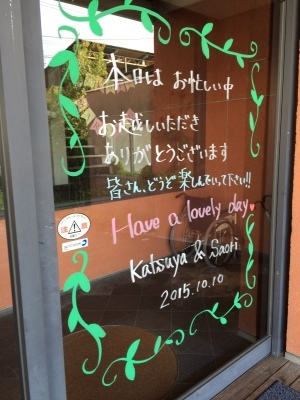 本日は お忙しい中
お越しいただき
ありがとうございます
皆さん、どうぞ楽しんでいって下さい!!
Have a lovely day♥
Katsuya & Saori
2015.10.10